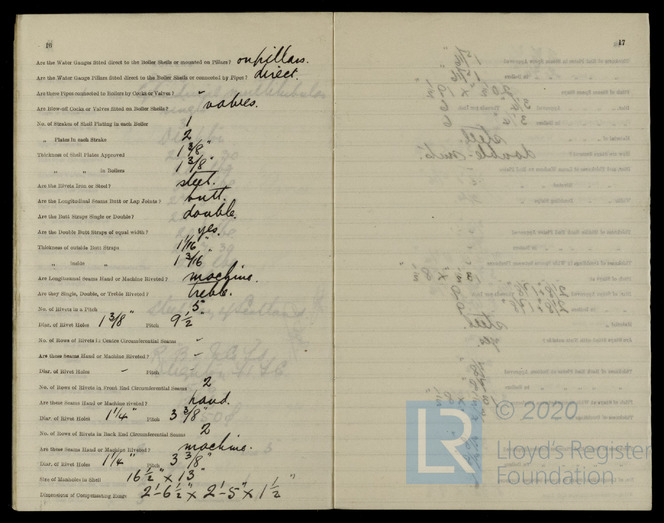 16
Are the Water Gauges fitted direct to the Boiler Shells or mounted on Pillars? on pillars.
Are the Water Gauge Pillars fitted direct to the Boiler Shells or connected by Pipes? direct.
Are these Pipes connected to Boilers by Cocks or Valves? -
Are Blow-off Cocks or Valves fitted on Boiler Shells? valves.
No. of Strakes of Shell Plating in each Boiler 1
„ Plates in each Strake 2
Thickness of Shell Plates Approved 1 3/8"
„ „ in Boilers 1 3/8"
Are the Rivets Iron or Steel? steel.
Are the Longitudinal Seams Butt or Lap Joints? butt.
Are the Butt Straps Single or Double? double.
Are the Double Butt Straps of equal width? yes.
Thickness of outside Butt Straps 1 1/16"
„ inside „ 1 3/16"
Are Longitudinal Seams Hand or Machine Riveted? machine.
Are they Single, Double, or Treble Riveted? treble.
No. of Rivets in a Pitch 5
Diar. of Rivet Holes 1 3/8" Pitch 9 1/2"
No. of Rows of Rivets in Centre Circumferential Seams -
Are these Seams Hand or Machine Riveted? -
Diar. of Rivet Holes - Pitch -
No. of Rows of Rivets in Front End Circumferential Seams 2
Are these Seams Hand or Machine riveted? hand.
Diar. of Rivet Holes 1 1/4" Pitch 3 3/8"
No. of Rows of Rivets in Back End Circumferential Seams 2
Are these Seams Hand or Machine Riveted? machine.
Diar. of Rivet Holes 1 1/4" Pitch 3 3/8"
Size of Manholes in Shell 16 1/2" x 13"
Dimensions of Compensating Rings 2'-6 1/2" x 2'-5" x 1 1/2"
17
© 2020
LR
Lloyd's Register
Foundation